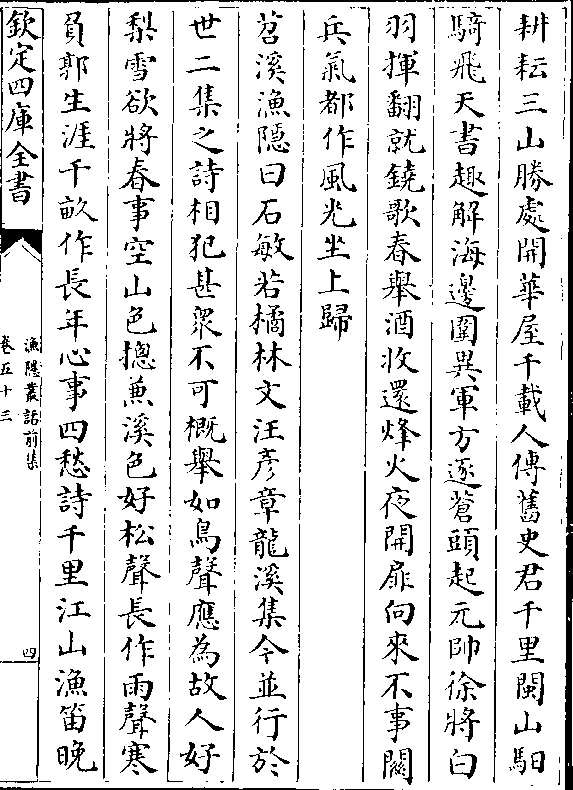 耕耘三山勝處開華屋千載人傳舊史君千里閩山馹
騎飛天書趣解海邊圍異軍方逐蒼頭起元帥徐將白
羽揮翻就鐃歌春舉酒收還烽火夜開扉向來不事闗
兵氣都作風光坐上歸
苕溪漁隱曰石敏若橘林文汪彦章龍溪集今並行於
世二集之詩相犯甚衆不可概舉如鳥聲應為故人好
梨雪欲將春事空山色摠兼溪色好松聲長作雨聲寒
負郭生涯千畝作長年心事四愁詩千里江山漁笛晚
欽定四庫全書
漁隱叢話前集
卷五十三
四